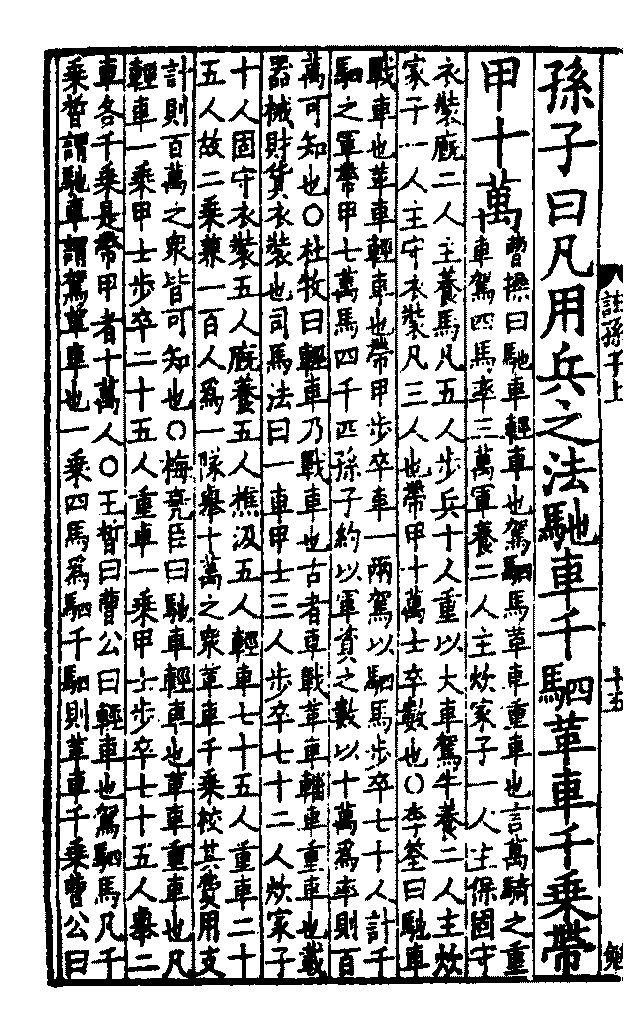 註孫子上
十五
孫子曰凡用兵之法馳車千駟革車千乘帶
甲十萬
曹操曰馳車輕車也駕駟馬革車重車也言萬騎之重
車駕四馬率三萬軍養二人主炊家子一人主保固守
衣裝廐二人主養馬凡五人步兵十人重以大車駕牛養二人主炊
家子一人主守衣裝凡三人也帶甲十萬士卒數也○李筌曰馳車
戰車也革車輕車也帶甲步卒車一兩駕以駟馬步卒七十人計千
駟之軍帶甲七萬馬四千匹孫子約以軍資之數以十萬爲率則百
萬可知也○杜牧曰輕車乃戰車也古者車戰革車輜車重車也載
器械財貨衣裝也司馬法曰一車甲士三人步卒七十二人炊家子
十人固守衣裝五人廐養五人樵汲五人輕車七十五人重車二十
五人故二乘兼一百人爲一隊舉十萬之衆革車千乘校其費用支
計則百萬之衆皆可知也○梅堯臣曰馳車輕車也革車重車也凡
輕車一乘甲士步卒二十五人重車一乘甲士步卒七十五人舉二
車各千乘是帶甲者十萬人○王晳曰曹公曰輕車也駕駟馬凡千
乘晳謂馳車謂駕革車也一乘四馬爲駟千駟則革車千乘曹公曰